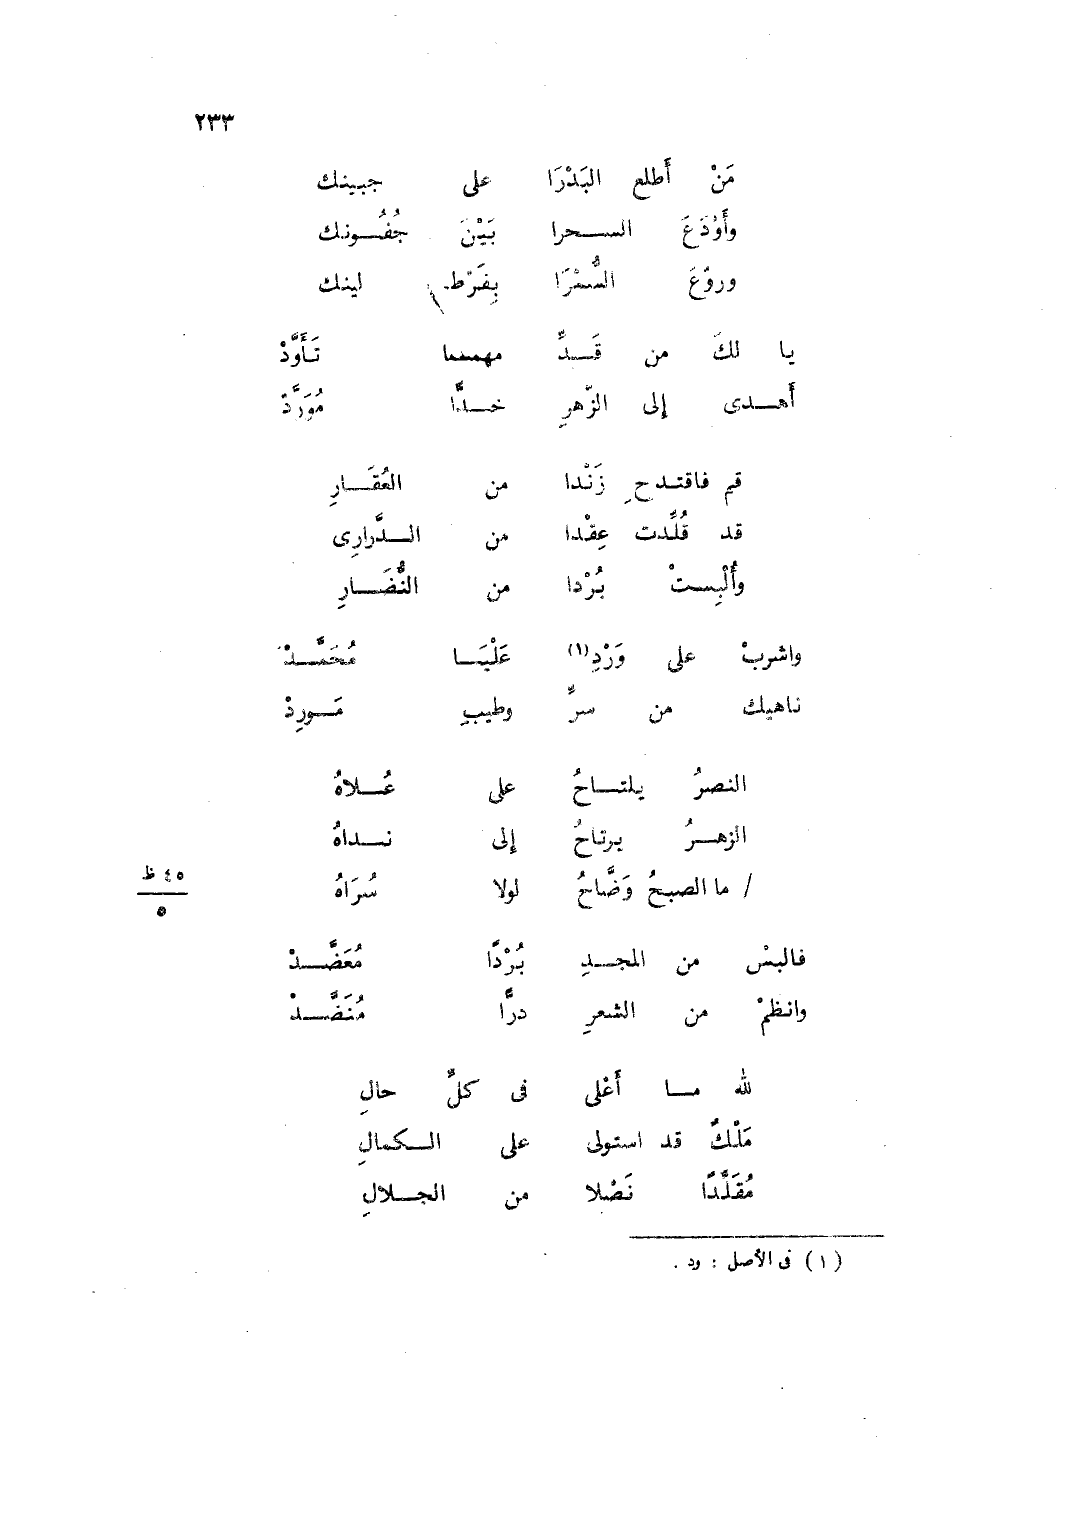 ٢٣٣
مَنْ أَطلع البَدْرَا على جبينك
وأَوْدَعَ السحرا بَيْنَ جُفُونك
وروّعَ السُّمْرَا بِفَرْط لينك
يا لكَ من قَدٍّ مهمما تَأَوَّدْ
أَهدى إلى الزّهرِ خدًّا مُوَرَّدْ
قم فاقتدحِ زَنْدا من العُقَارِ
قد قُلِّدت عِقْدا من الدَّرارِى
وأُلْبِستْ بُرْدا من النُّضَارِ
واشربْ على وَرْدِ(١) عَلْيَا مُحَمَّدْ
ناهيك من سرٍّ وطيبِ مَورِدْ
النصرُ يلتاحُ على عُلاهُ
الزهرُ يرتاحُ إلى نداهُ
/ ما الصبحُ وَضَّاحُ لولا سُرَاهُ
٤٥ ظ
٥
فالبسْ من المجدِ بُرْدًا مُعَضَّدْ
وانظمْ من الشعرِ درًّا مُنَضَّدْ
لله ما أَعْلى فى كلِّ حالِ
مَلْكٌ قد استولى على الكمالِ
مُقَلَّدًا نَصْلا من الجلالِ
(١) فى الأصل : ود .